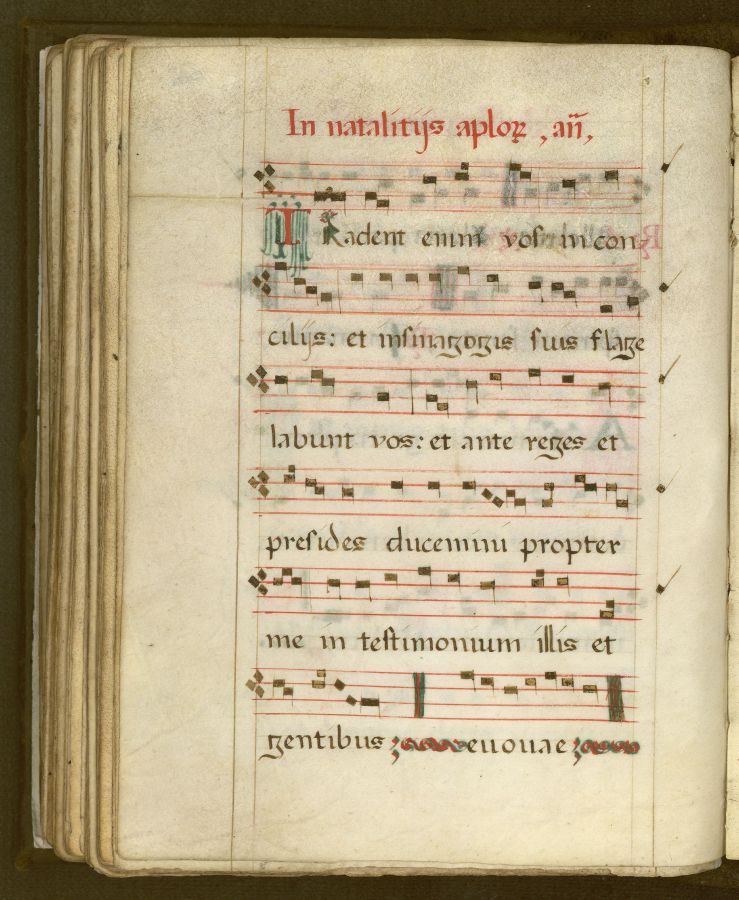 In natalitijs aploꝝ, añ,
TRadent enim vos in con
cilijs: et in sinagogis suis flage
labunt vos: et ante reges et
presides ducemini propter
me in testimonium illis et
gentibus euouae